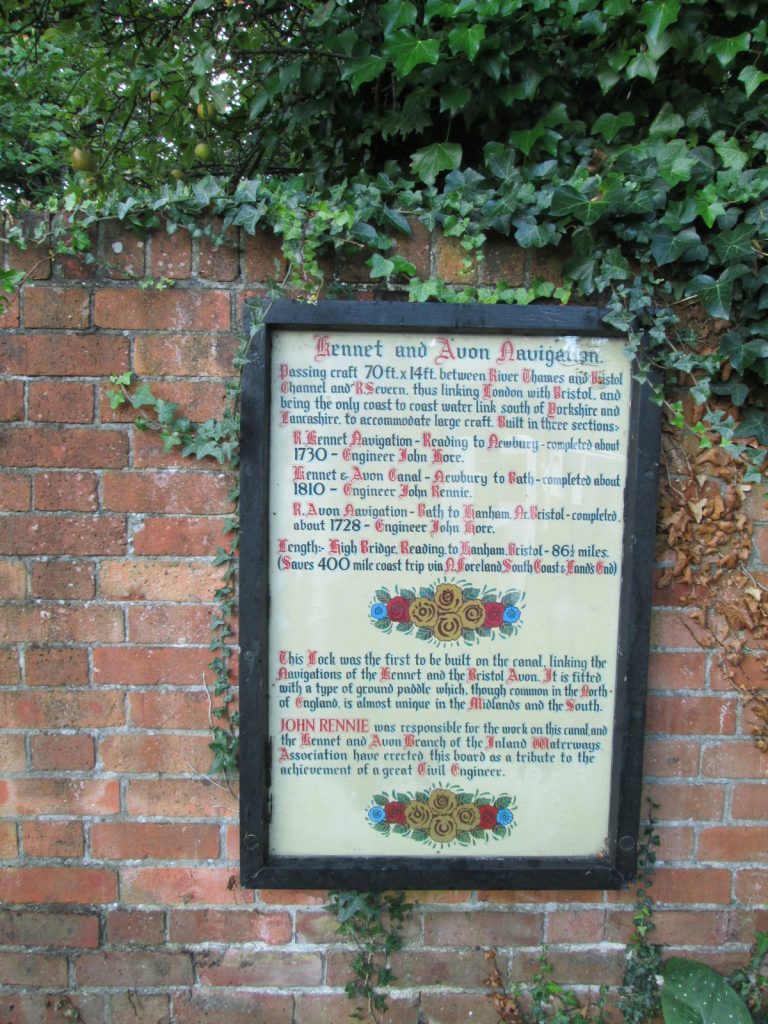 Kennet and Avon Navigation.
Passing craft 70ft. x 14ft. between River Thames and Bristol
Channel and R.Severn, thus linking London with Bristol, and
being the only coast to coast water link south of Yorkshire and
Lancashire, to accommodate large craft. Built in three sections:-
R.Kennet Navigation - Reading to Newbury - completed about
1730 - Engineer John Hore.
Kennet & Avon Canal - Newbury to Bath - completed about
1810 - Engineer John Rennie.
R.Avon Navigation - Bath to Hanham, Nr. Bristol - completed
about 1728 - Engineer John Hore.
Length:- High Bridge, Reading, to Hanham, Bristol - 86½ miles.
(Saves 400 mile coast trip via N.Foreland South Coast & Lands End)
This Lock was the first to be built on the canal, linking the
Navigations of the Kennet and the Bristol Avon. It is fitted
with a type of ground paddle which, though common in the North
of England, is almost unique in the Midlands and the South.
JOHN RENNIE was responsible for the work on this canal, and
the Kennet and Avon Branch of the Inland Waterways
Association have erected this board as a tribute to the
achievement of a great Civil Engineer.